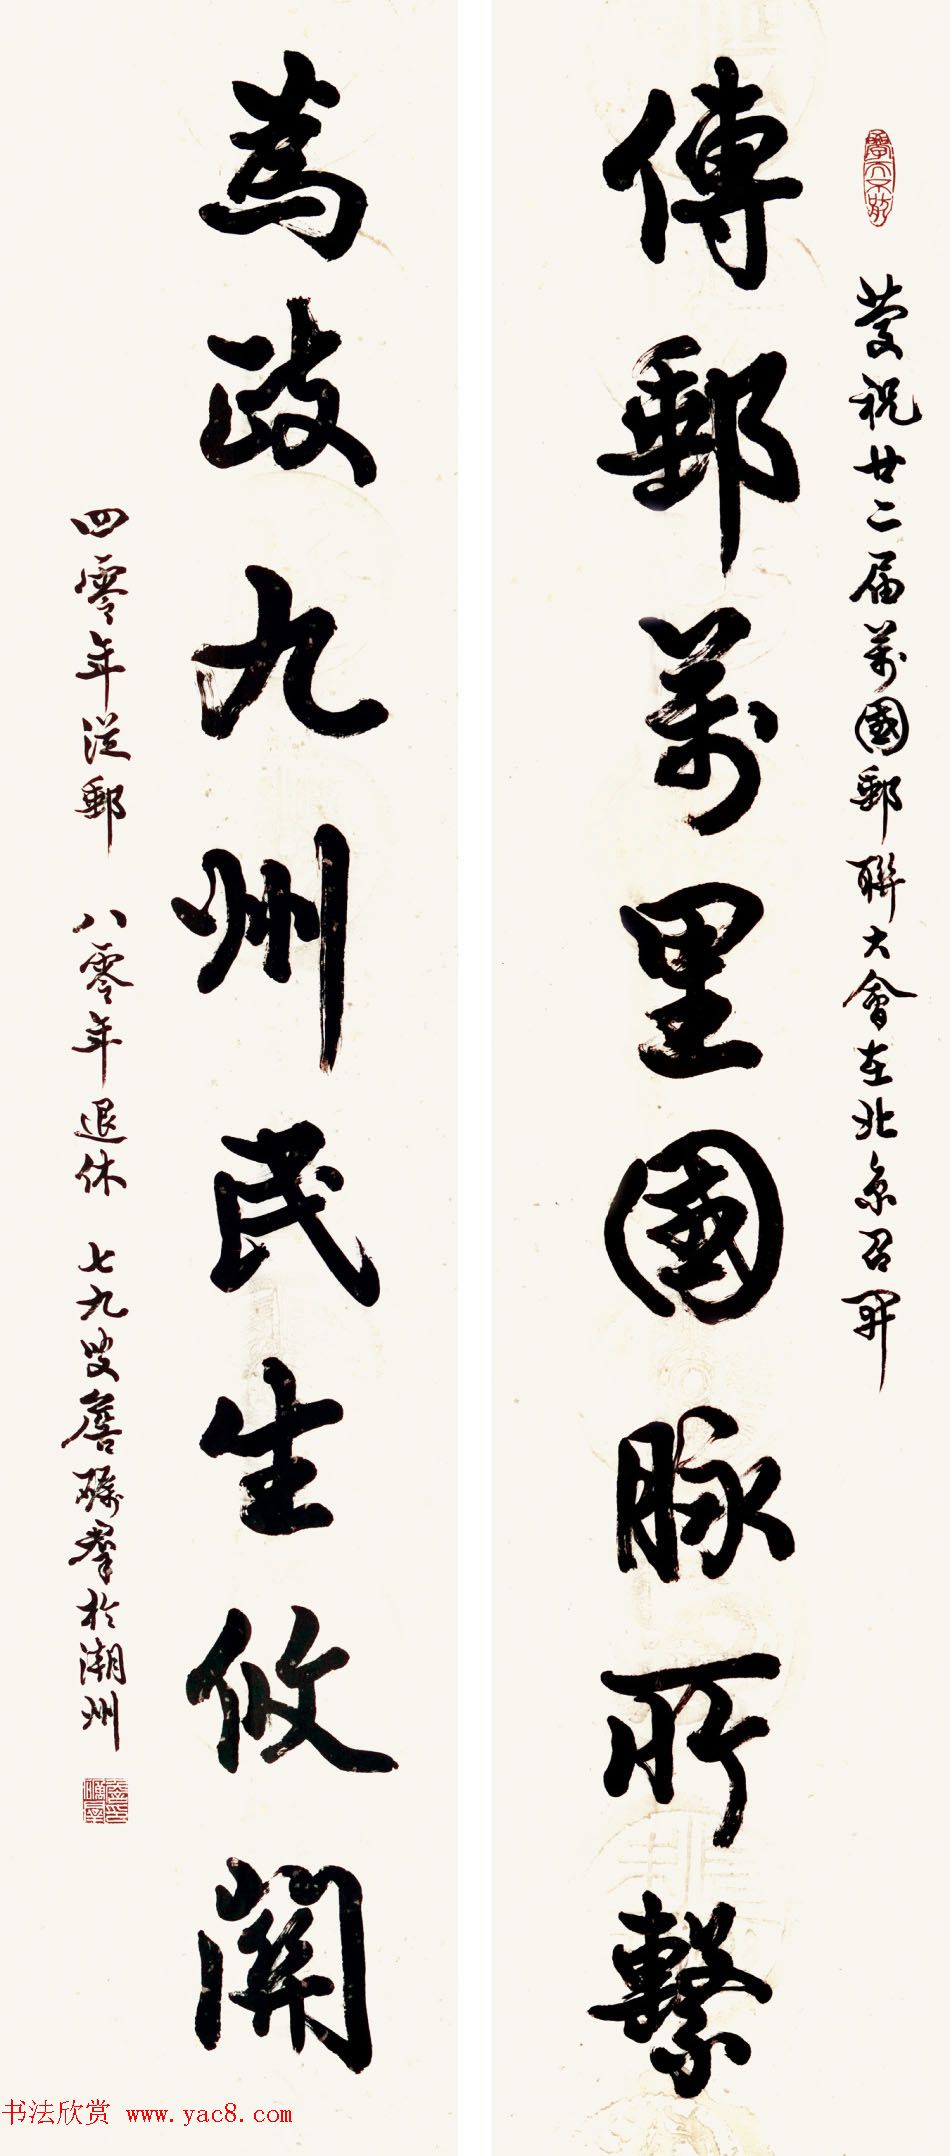 慶祝廿二屆萬國郵聯大會在北京召開
傳郵萬里國脉所繫
為政九州民生攸關
四零年從郵 八零年退休 七九叟詹礪群於潮州
书法欣赏 www.yac8.com